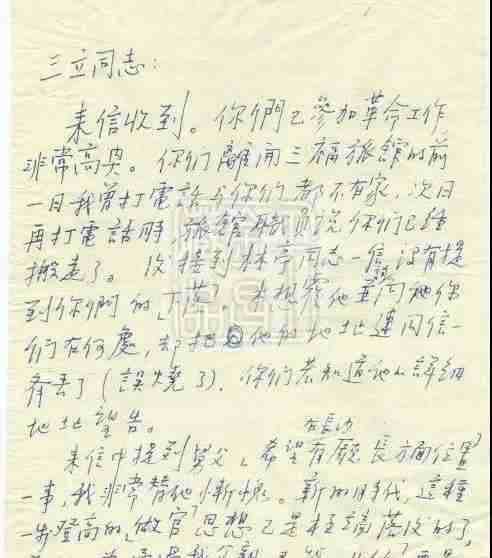 三立同志：
来信收到。你們已參加革命工作
非常高兴。你们離開三福旅館的前
一日我曾打電話你们都不在家，次日
再打電話時，旅館職員說你们已經
搬走了。後接到林亭同志一信說没有提
到你們的「下落」
们在何處，却把他的地址連同信一
齊丢了（誤燒了）。你們若知道他的詳細
地址望告。
来信中提到父，希望在長沙有願長方面位置
一事，我非常替他慚愧。新的時代，這種
一步登高的「做官」思想已是極端落後的了，